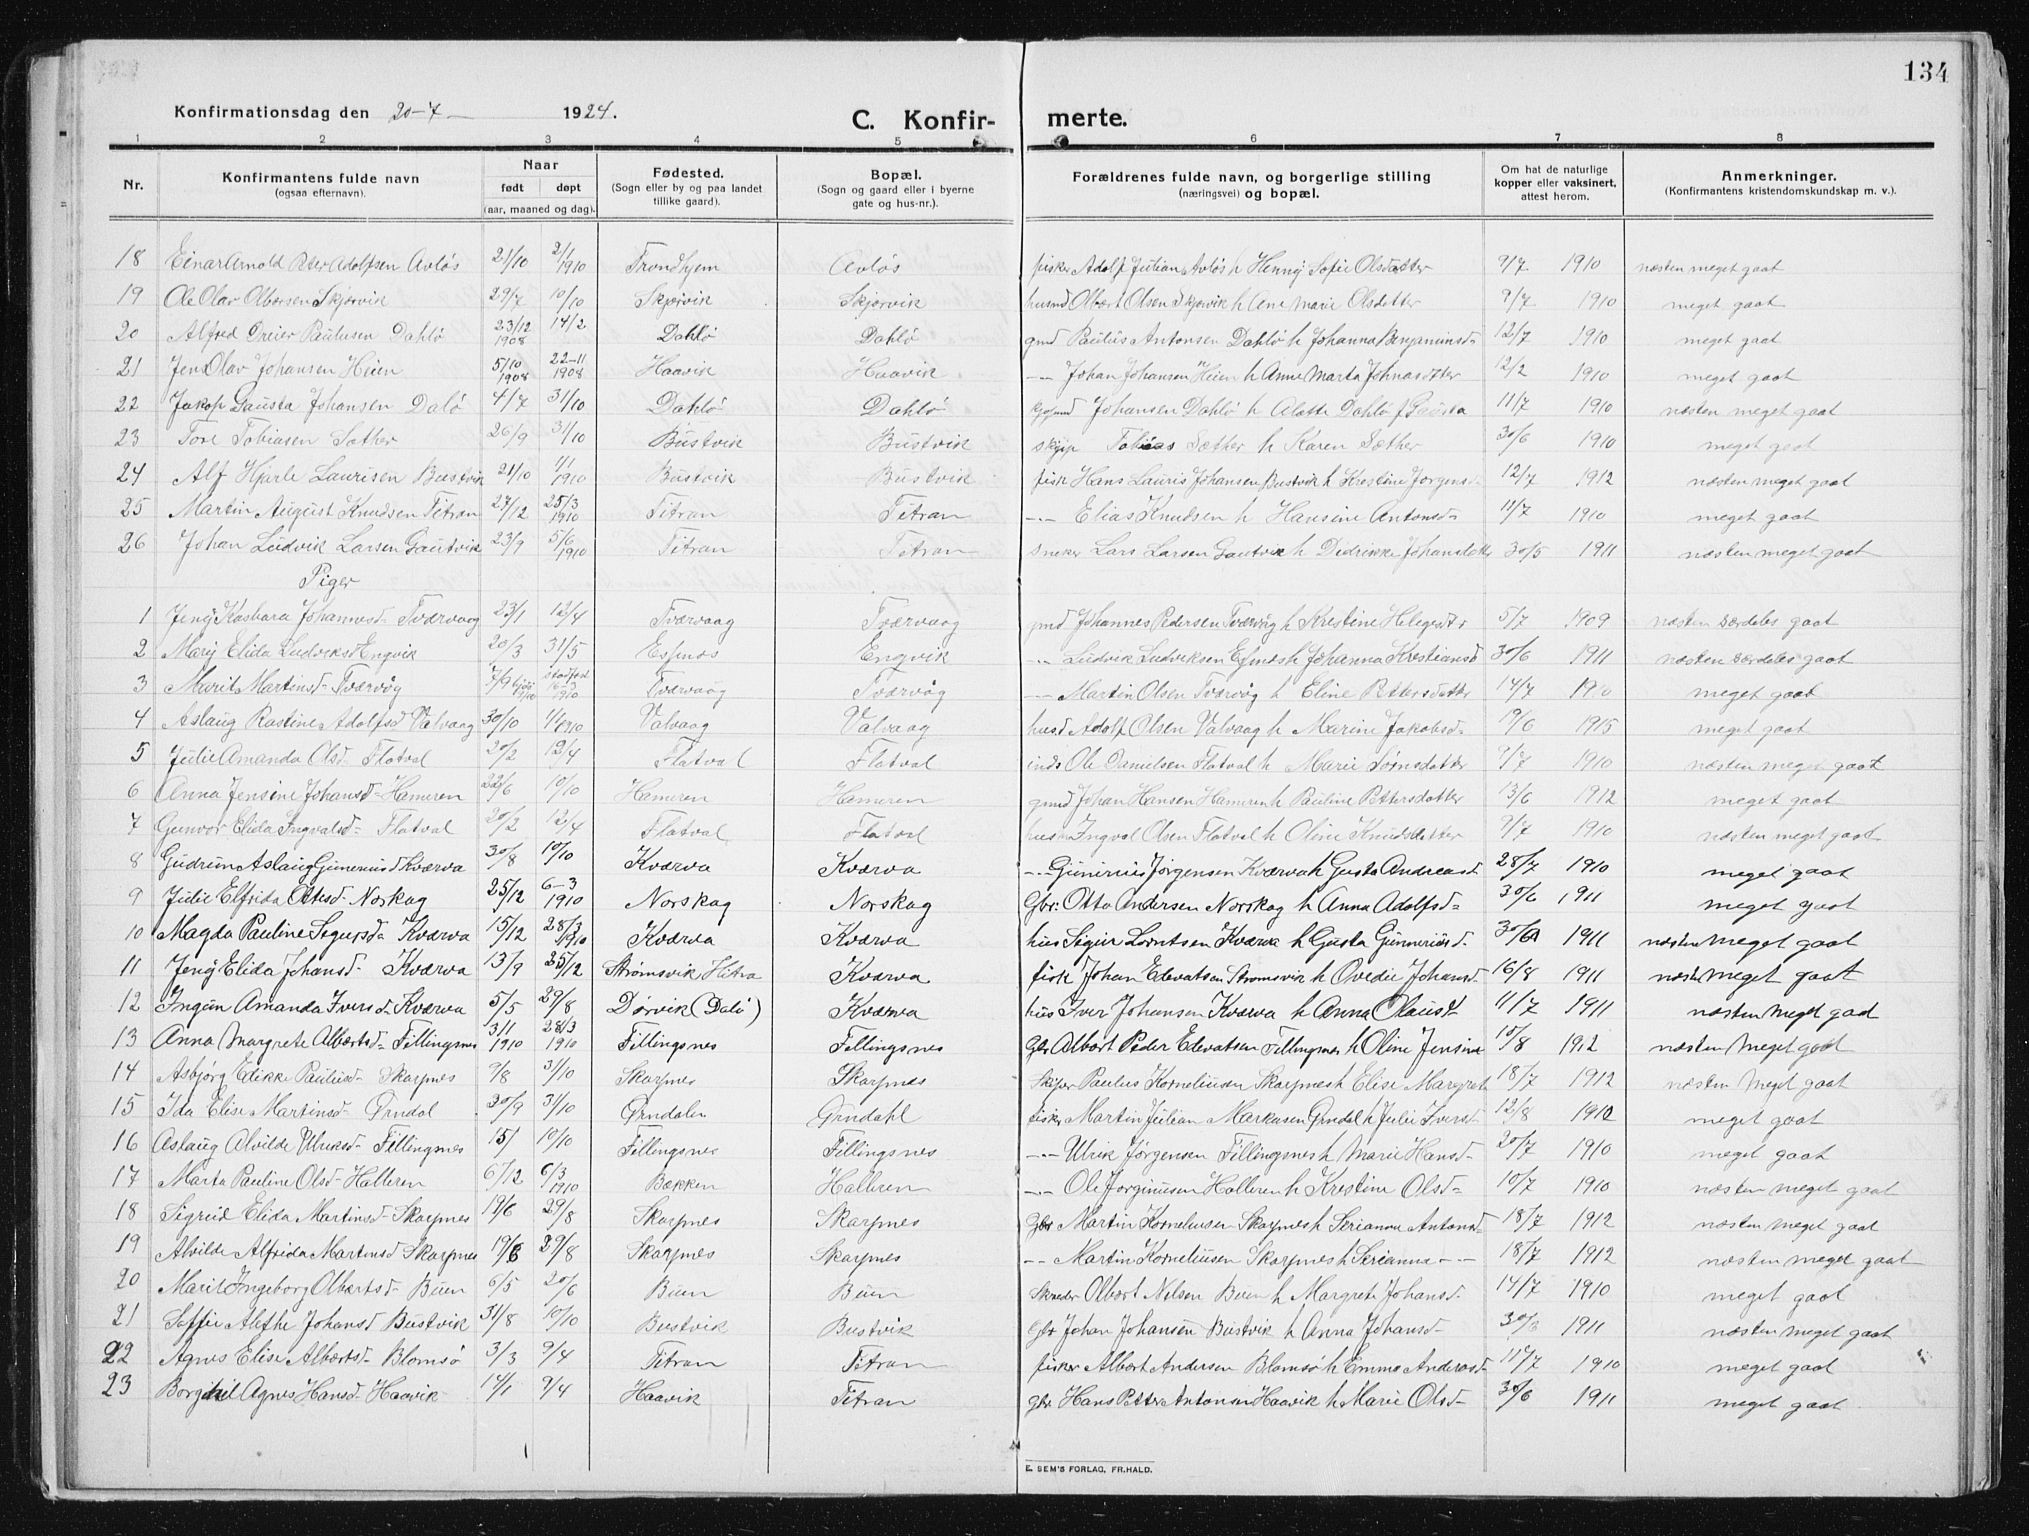 134
Konfirmationsdag den 20-7 1924.
C. Konfir- merte.
1 2 3 4 5 6 7 8
Nr. Konfirmantens fulde navn (ogsaa efternavn). Naar født døpt (aar, maaned og dag). Fødested. (Sogn eller by og paa landet tillike gaard). Bopæl. (Sogn og gaard eller i byerne gate og hus-nr.). Forældrenes fulde navn, og borgerlige stilling (næringsvei) og bopæl. Om hat de naturlige kopper eller vaksinert, attest herom. Anmerkninger. (Konfirmantens kristendomskundskap m. v.).
18 Einar Arnold Peter Adolfsen Avløs 21/10 2/1 1910 Trondhjem Avløs fisker Adolf Julian Avløs h Henny Sofie Olsdatter 9/7 1910 næsten meget gaat
19 Ole Olav Olbersen Skjærvik 29/7 10/10 Skjærvik Skjærvik husmd Olbert Olsen Skjærvik h Ane Marie Olsdetter 9/7 1910 meget gaat
20 Alfred Dreier Paulusen Dahlø 23/12 1908 14/2 Dahlø Dahlø gmd Paulus Antonsen Dahlø h Johanna Benjaminsd- 12/7 1910 meget gaat
21 Jens Olav Johansen Heien 5/10 1908 22-11 1908 Haavik Haavik -- Johan Johansen Heien h Anne Marta Johnasdtter 12/2 1910 meget gaat
22 Jakop Gausta Johansen Dalø 4/7 31/10 Dahlø Dahlø Johansen Dahlø h Alatte Dahlø f Gausta 11/7 1910 næsten meget gaat
23 Tore Tobiasen Sather 26/9 31/10 Bustvik Bustvik skipp Tobias Sæther h Karen Sæther 30/6 1910 meget gaat
24 Alf Hjarle Laurisen Bustvik 21/10 1/1 1910 Bustvik Bustvik fisk Hans Lauris Johansen Bustvik h Krestine Jorgensd- 12/7 1912 næsten meget gaat
25 Martin August Knudsen Titran 27/12 25/3 1910 Titran Titran -- Elias Knudsen h Hansine Antonsd- 11/7 1910 meget gaat
26 Johan Ludvik Larsen Gautvik 23/9 5/6 1910 Titran Titran sneker Lars Larsen Gautvik h Didrikke Johansdatter 30/5 1911 næsten meget gaat
Piger
1 Jeny Kasbara Johannesd- Tværvaag 23/1 12/4 Tværvaag Tværvaag gmd Johannes Pedersen Tværvåg h Krestine 5/7 1909 næsten særdeles gaat
2 Mary Elida Ludviksd Engvik 20/3 31/5 Esnæs Engvik -- Ludvik Ludviksen Esnæs h Johanna Krestiansd 30/6 1911 næsten særdeles gaat
3 Marit Martinsd- Tværvåg 7/9 Tværvaag Tværvåg -- Martin Olsen Tværvåg h Eline Pettersdatter 14/7 meget gaat
4 Aslaug Rastine Adolfsd Valvaag 30/10 1/1 1910 Valvaag Valvaag husd Adolf Olsen Valvaag h Marine Jakobsd- 9/6 1915 meget gaat
5 Julie Amanda Olsd- Flatval 20/2 12/4 Flatval Flatval inds Ole Danielsen Flatval h Marie Sørnsdatter 9/7 1910 næsten meget gaat
6 Anna Jensine Johansd- Hameren 22/6 10/10 Hameren Hameren gmd Johan Hansen Hameren h Pauline Pettersdatter 13/6 1912 meget gaat
7 Gunvor Elida Ingvalsd- Flatval 20/2 12/4 Flatval Flatval husm Ingval Olsen Flatval h Oline Knudsdatter 9/7 1910 næsten meget gaat
8 Gudrun Aslaug Gunerius d Kværva 30/8 10/10 Kværva Kværva -- Gunerius Jørgensen Kværva h Gusta Andreasd 28/7 1910 meget gaat
9 Julie Elfrida Ottesd- Norskag 25/12 6-3 1910 Norskag Norskag Gbr: Otto Andersen Norskag h Anna Adolfsd= 30/6 1911 meget gaat
10 Magda Pauline Sigursda Kværva 15/12 28/3 1910 Kværva Kværva hus Sigur Lorntsen Kværva h Gusta Gunneriusd- 30/6 1911 næsten meget gaat
11 Jeny Elida Johansd- Kværva 13/9 25/12 Strømsvik Hitra Kværva fisk Johan Edevatsen Strømsvik h Ovedie Johansd- 16/8 1911 næsten meget gaat
12 Ingun Amanda Iversd- Kværva 5/5 29/8 Dørvik (Dalø) Kværva hus Iver Johansen Kværva h Anna Olausd 11/7 1911 næsten meget gad
13 Anna Margrete Albertsd= Fillingsnes 3/1 1910 28/3 1910 Fillingsnes Fillingsnes Gbr Albert Peder Edevatsen Fillingsnes h Oline Jensine 10/8 1912 næsten meget gaat
14 Asbjørg Edikke Paulusd- Skarpnes 9/8 31/10 Skarpnes Skarpnes Skiper Paulus Korneliusen Skarpnes h Elise Margrete 18/7 1912 næsten meget gaat
15 Ida Elise Martinsd- Ørndal 30/9 31/10 Ørndalen Ørndahl fisker Martin Julian Markusen Ørndal h Julie Iversd 12/8 1910 meget gaat
16 Aslaug Alvilde Ulriksd- Fillingsnes 15/ 10/10 Fillingsnes Fillingsnes -- Ulrik Jørgensen Fillingsnes h Marie Hansd- 20/7 1910 meget gaat
17 Marta Pauline Olsd- Halleren 6/12 6/3 1910 Bækken Halleren -- Ole Jorginusen Halleren h Krestine Olsd= 10/7 1910 næsten meget gaat
18 Sigrud Elida Martinsd- Skarpnes 19/6 29/8 Skarpnes Skarpnes Gbr Martin Korneliusen Skarpnes h Serianna Antonsd- 18/7 1912 næsten meget gaat
19 Alvilde Alfrida Martinsd Skarpnes 19/6 29/8 Skarpnes Skarpnes -- Martin Korneliusen Skarpnes h Serianna -- 18/7 1912 næsten meget gaat
20 Marit Ingeborg Olbertsd- Buen 6/5 20/6 Buen Buen Skreder Olbert Nelsen Buen h Margrete Johansd- 14/7 1910 meget gaat
21 Soffie Alfhe Johansd Bustvik 31/8 10/10 Bustvik Bustvik Gbr Johan Johansen Bustvik h Anna Johansd- 30/6 1911 næsten meget gaat
22 Agnes Elise Albertsd- Blomsø 3/3 9/4 Titran Titran fisker Albert Andersen Blomsø h Emma Andersd- 11/7 1910 meget gaat
23 Borghil Agnes Hansd- Haavik 14/1 9/4 Haavik Titran gbr. Hans Petter Antonsen Haavik h Marie Olsd- 30/6 1911 meget gaat
E. SEM'S FORLAG, FR.HALD.